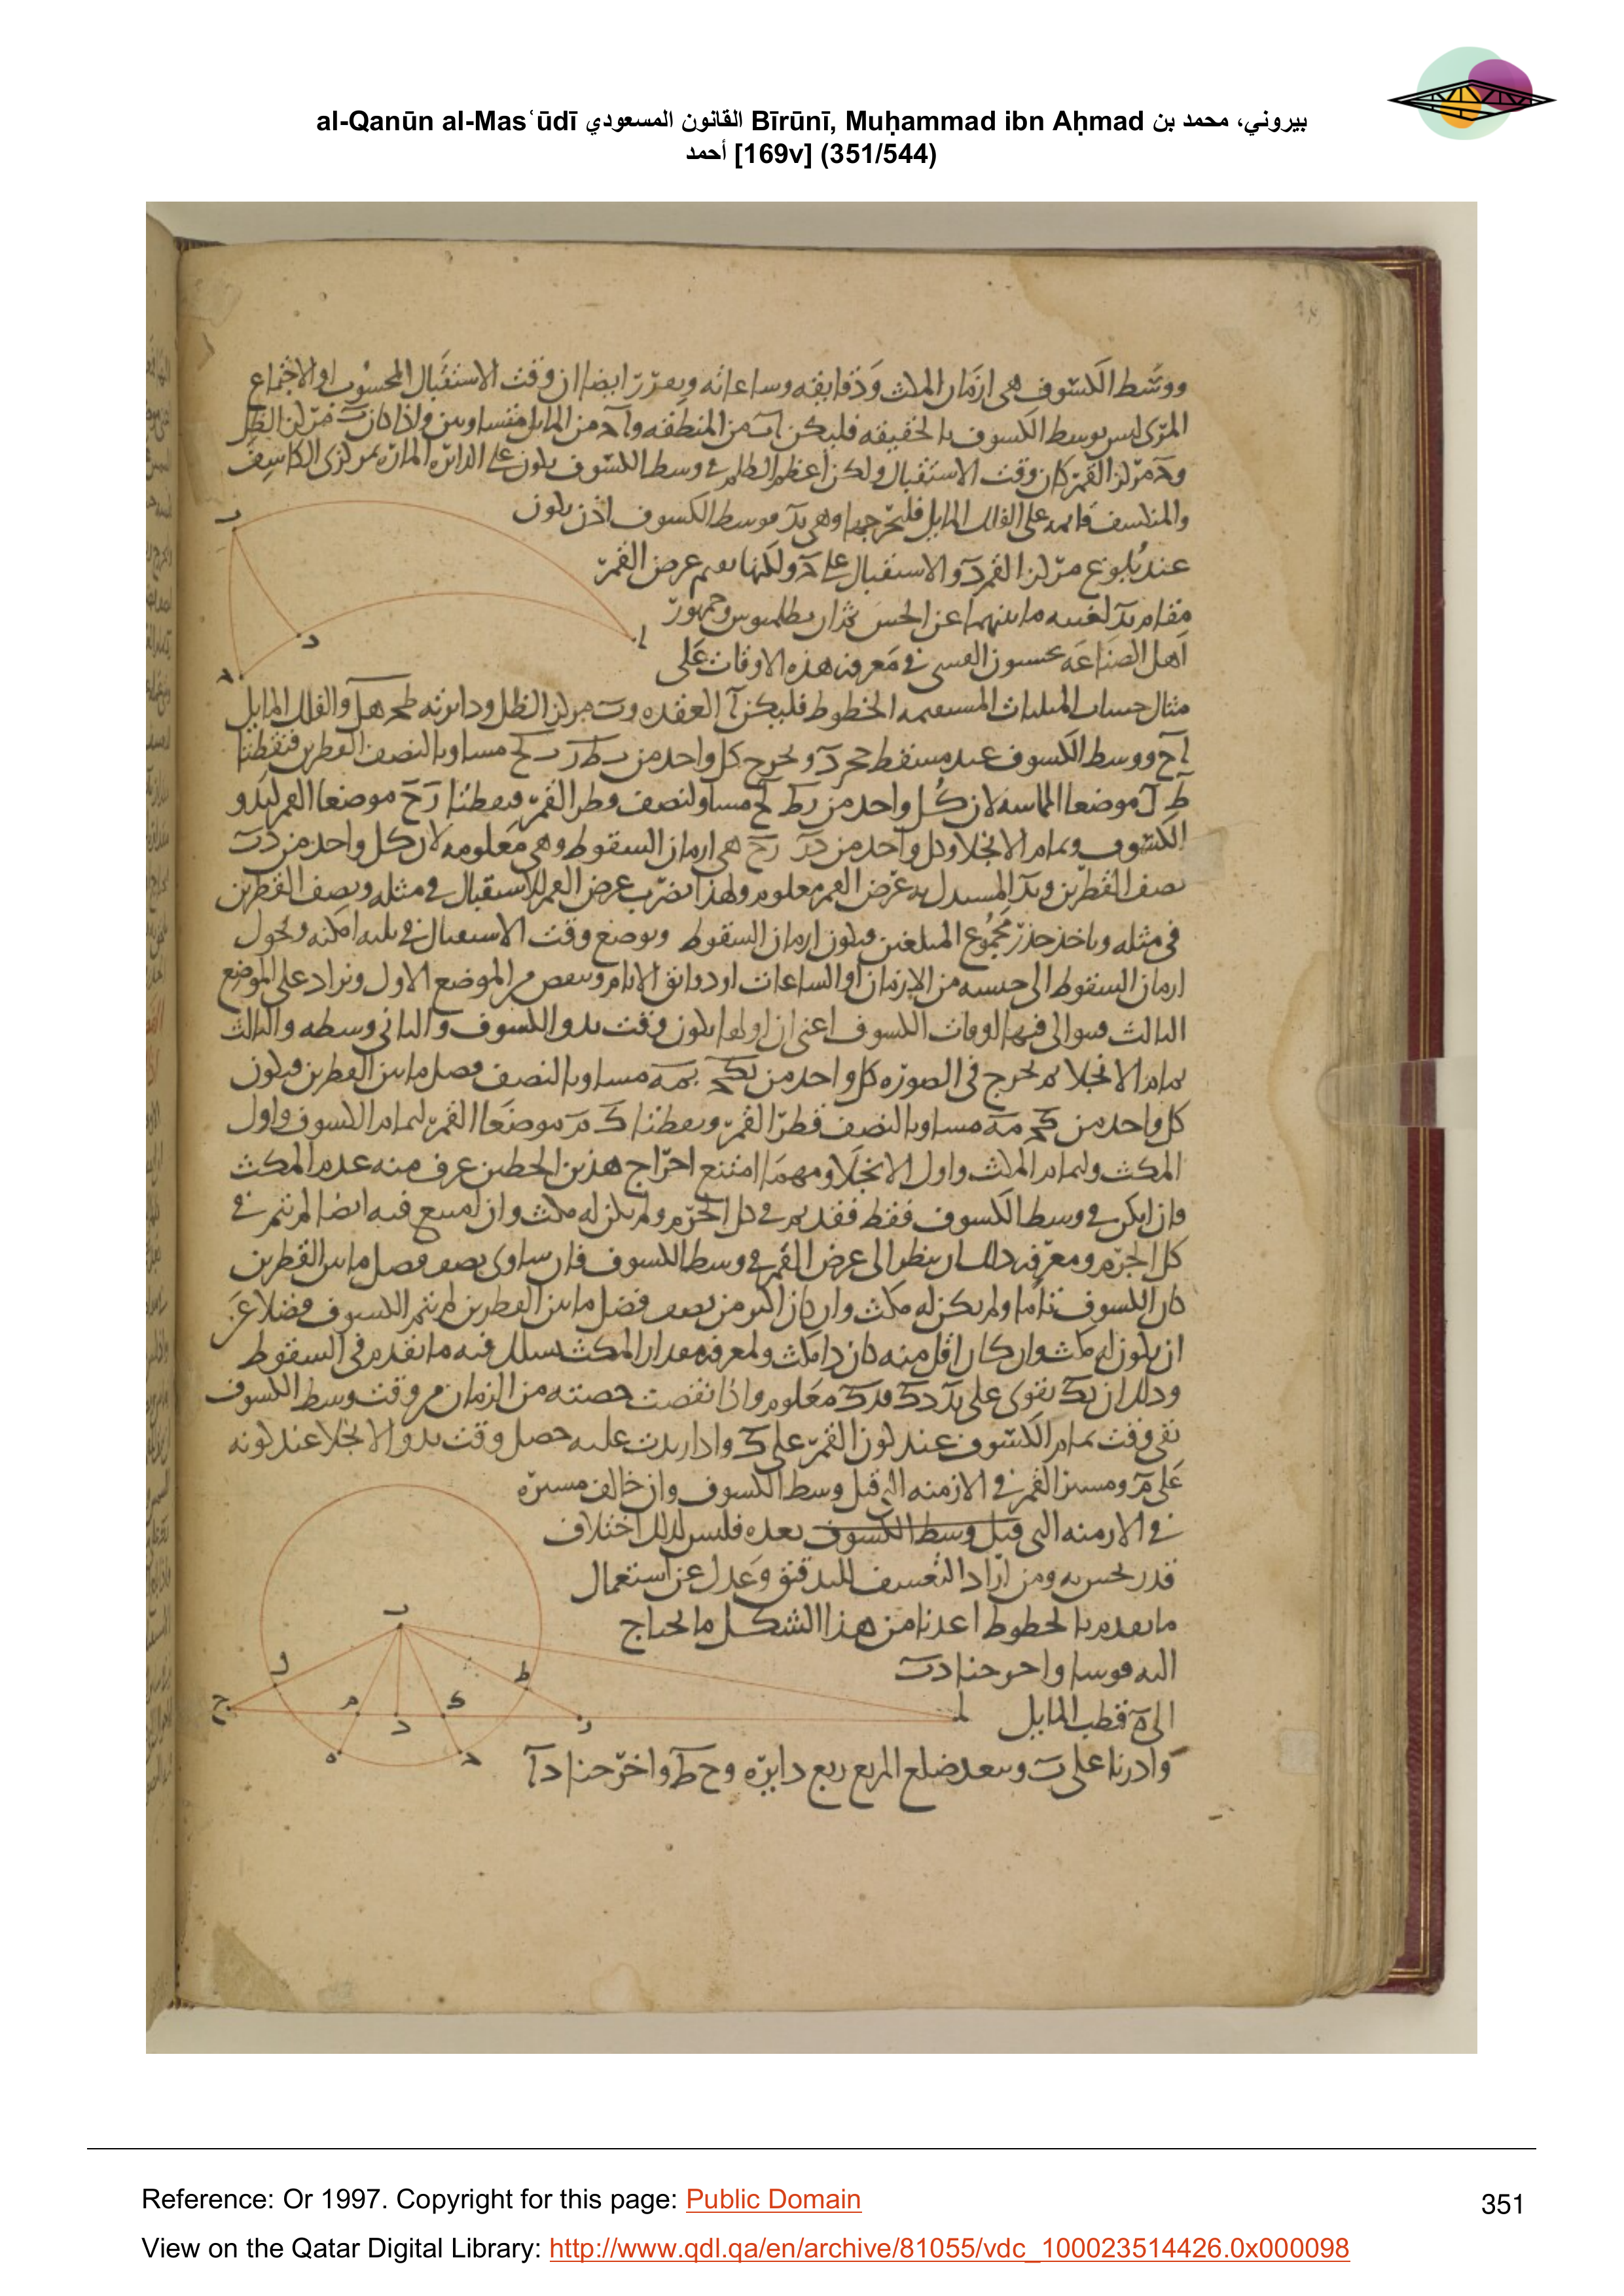 al-Qanūn al-Masʿūdī القانون المسعودي Bīrūnī, Muḥammad ibn Aḥmad بيروني، محمد بن
أحمد [169v] (351/544)
ووسط الكسوف هي ازمان المكث ودقايقه وساعاته ايضا ان وقت الاستقبال المحسوب او الاجتماع
المرى ليس بوسط الكسوف بالحقيقه فليكن اب من المنطقه واد من المايل متساويين واذا كان ب مركز الظل
ود مركز القمر كان وقت الاستقبال ولكن اعظم الظلام في وسط الكسوف يكون على الدايره الماره بمركزى الكاسف
والمنكسف قايمه على الفلك المايل فلنخرجها وهي بد فوسط الكسوف اذن يكون
ب
عند بلوغ مركز القمر د والاستقبال على ه ولكنها عرض القمر
مقام بد ما بينهما عن الحس بطلميوس وجمهور
ا
د
اهل الصناعه القسى في معرفة هذه الاوقات على
ه
مثال حساب المثلثات المستقيمه الخطوط فليكن ا العقده وب مركز الظل ودايرته والفلك المايل
اح ووسط الكسوف عند مسقط د ونخرج كل واحد من مساويا لنصف القطرين فنقطتا
ط ل موضعا المماسه لان كل واحد من مساو لنصف قطر القمر ونقطتا ز ح موضعا القمر لبدو
الكسوف وتمام الانجلا وكل واحد من هي ازمان السقوط وهي معلومه لان كل واحد من
نصف القطرين وبد عرض القمر معلوم ولهذا نضرب عرض القمر للاستقبال في مثله ونصف القطرين
في مثله وناخذ جذر مجموع المبلغين فيكون ازمان السقوط ونوضع وقت الاستقبال في ثلثه امكنه ونحول
ازمان السقوط الى جنسه من الازمان او الساعات او دقايق الايام وننقص من الموضع الاول ونزاد على الموضع
الثالث فيها اوقات الكسوف اعنى ان اولها يكون وقت بدو الكسوف والثاني وسطه والثالث
تمام الانجلا ثم نخرج في الصوره كل واحد من مساويا لنصف فضل ما بين القطرين فيكون
كل واحد من مساويا لنصف قطر القمر ونقطتا ك م موضعا القمر لتمام الكسوف واول
المكث ولتمام المكث واول الانجلا ومهما امتنع اخراج هذين الخطين عرف منه عدم المكث
في وسط الكسوف فقط فقد تم في كل الجرم ولم يكن له مكث وان امتنع فيه ايضا لم يتم في
كل الجرم ومعرفة ذلك ان ينظر الى عرض القمر في وسط الكسوف فان ساوى نصف فضل ما بين القطرين
كان الكسوف تاما ولم يكن له مكث وان كان اكثر من نصف فضل ما بين القطرين لم يتم الكسوف فضلا عن
ان يكون له مكث وان كان اقل منه كان ذا مكث ولمعرفة مقدار المكث يسلك فيه ما تقدم في السقوط
وذلك ان بك يقوى على بد دك فدك معلوم واذا نقصت حصته من الزمان من وقت وسط الكسوف
بقى وقت تمام الكسوف عند كون القمر على ك واذا زيدت عليه حصل وقت بدو الانجلا عند كونه
على م ومسير القمر في الازمنه التي قبل وسط الكسوف وان خالف مسيره
في الازمنه التي قبل وسط الكسوف بعده فليس لذلك اختلاف
قدر يحس به ومن اراد التعسف للتدقيق وعدل عن استعمال
ما تقدم بالخطوط اعدنا من هذا الشكل ما يحتاج
ب
اليه قوسا واخرجنا دب
ل
ط
الى ه قطب المايل
ا
ز
ك
د
م
ح
وادرنا على ب وببعد ضلع المربع ربع دايره وح ط واخرجنا دا
ه
ه
Reference: Or 1997. Copyright for this page: Public Domain
351
View on the Qatar Digital Library: http://www.qdl.qa/en/archive/81055/vdc_100023514426.0x000098